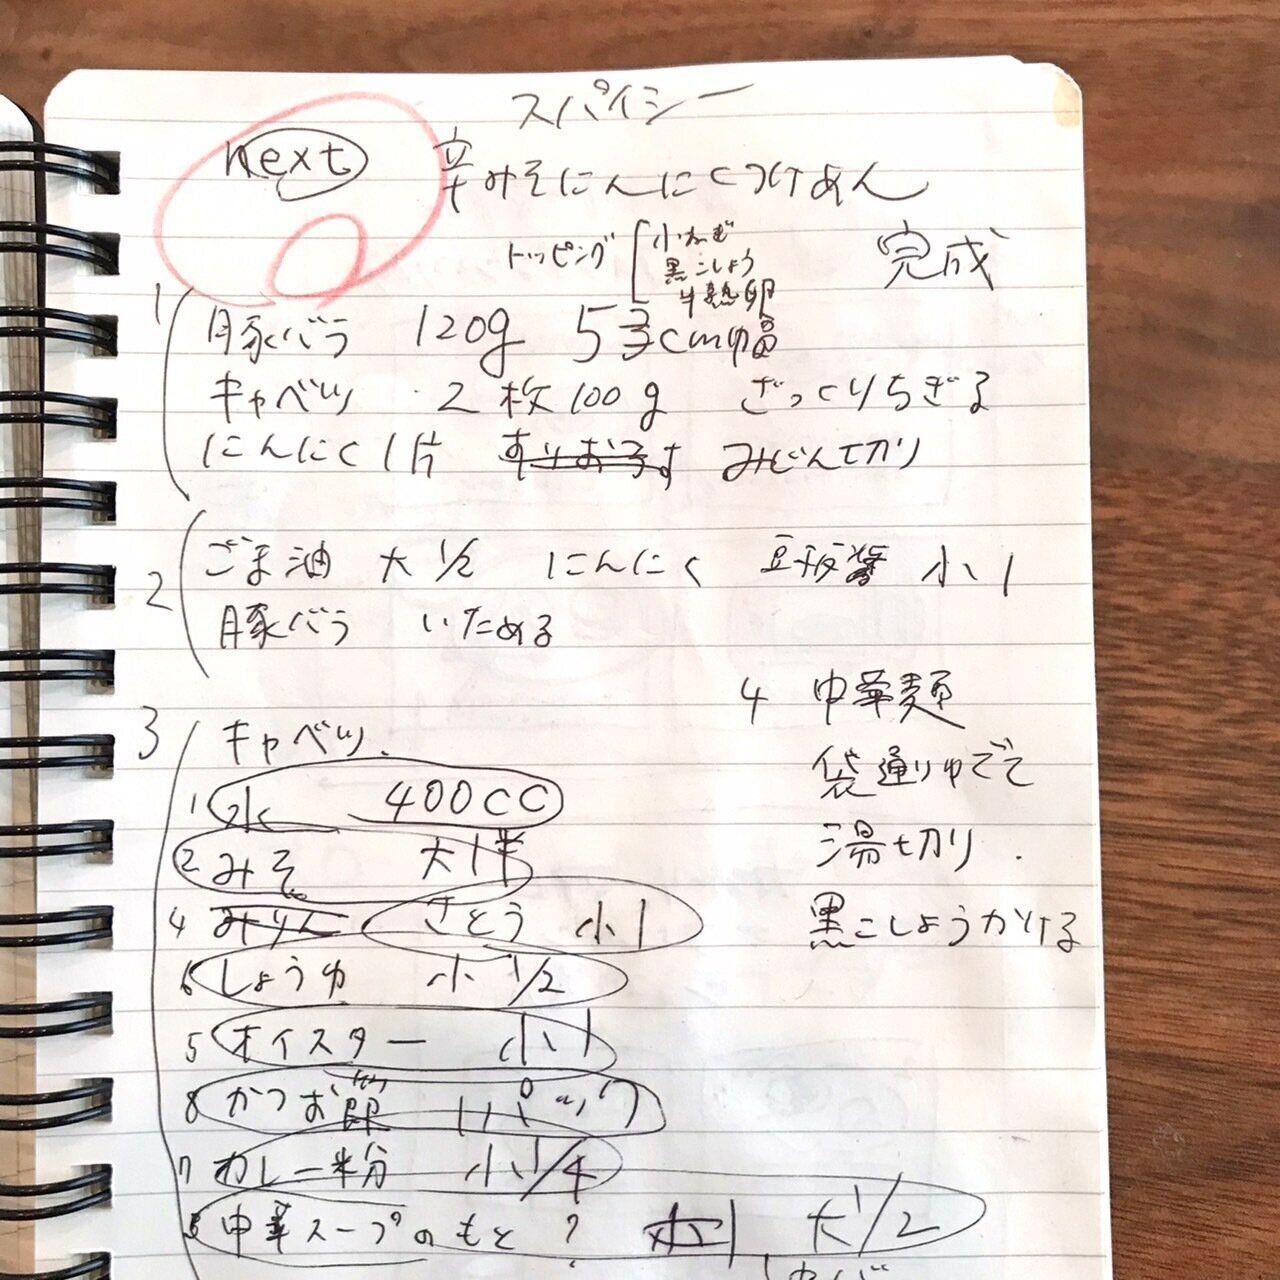 スパイシー
next
辛みそにんにくつけめん
トッピング 小ねぎ
黒こしょう
半熟卵
完成
1 豚バラ 120g 5 cm幅
キャベツ 2枚 100g ざっくりちぎる
にんにく 1片 すりおろす みじん切り
2 ごま油 大1/2 にんにく 豆板醤 小1
豚バラ いためる
3 キャベツ
1 水 400cc
2 みそ 大1半
4 みりん さとう 小1
6 しょうゆ 小1/2
5 オイスター 小1
8 かつお節 1パック
7 カレー粉 小1/4
3 中華スープのもと ? 大1/2
4 中華麺
袋通りゆでて
湯切り
黒こしょうかける